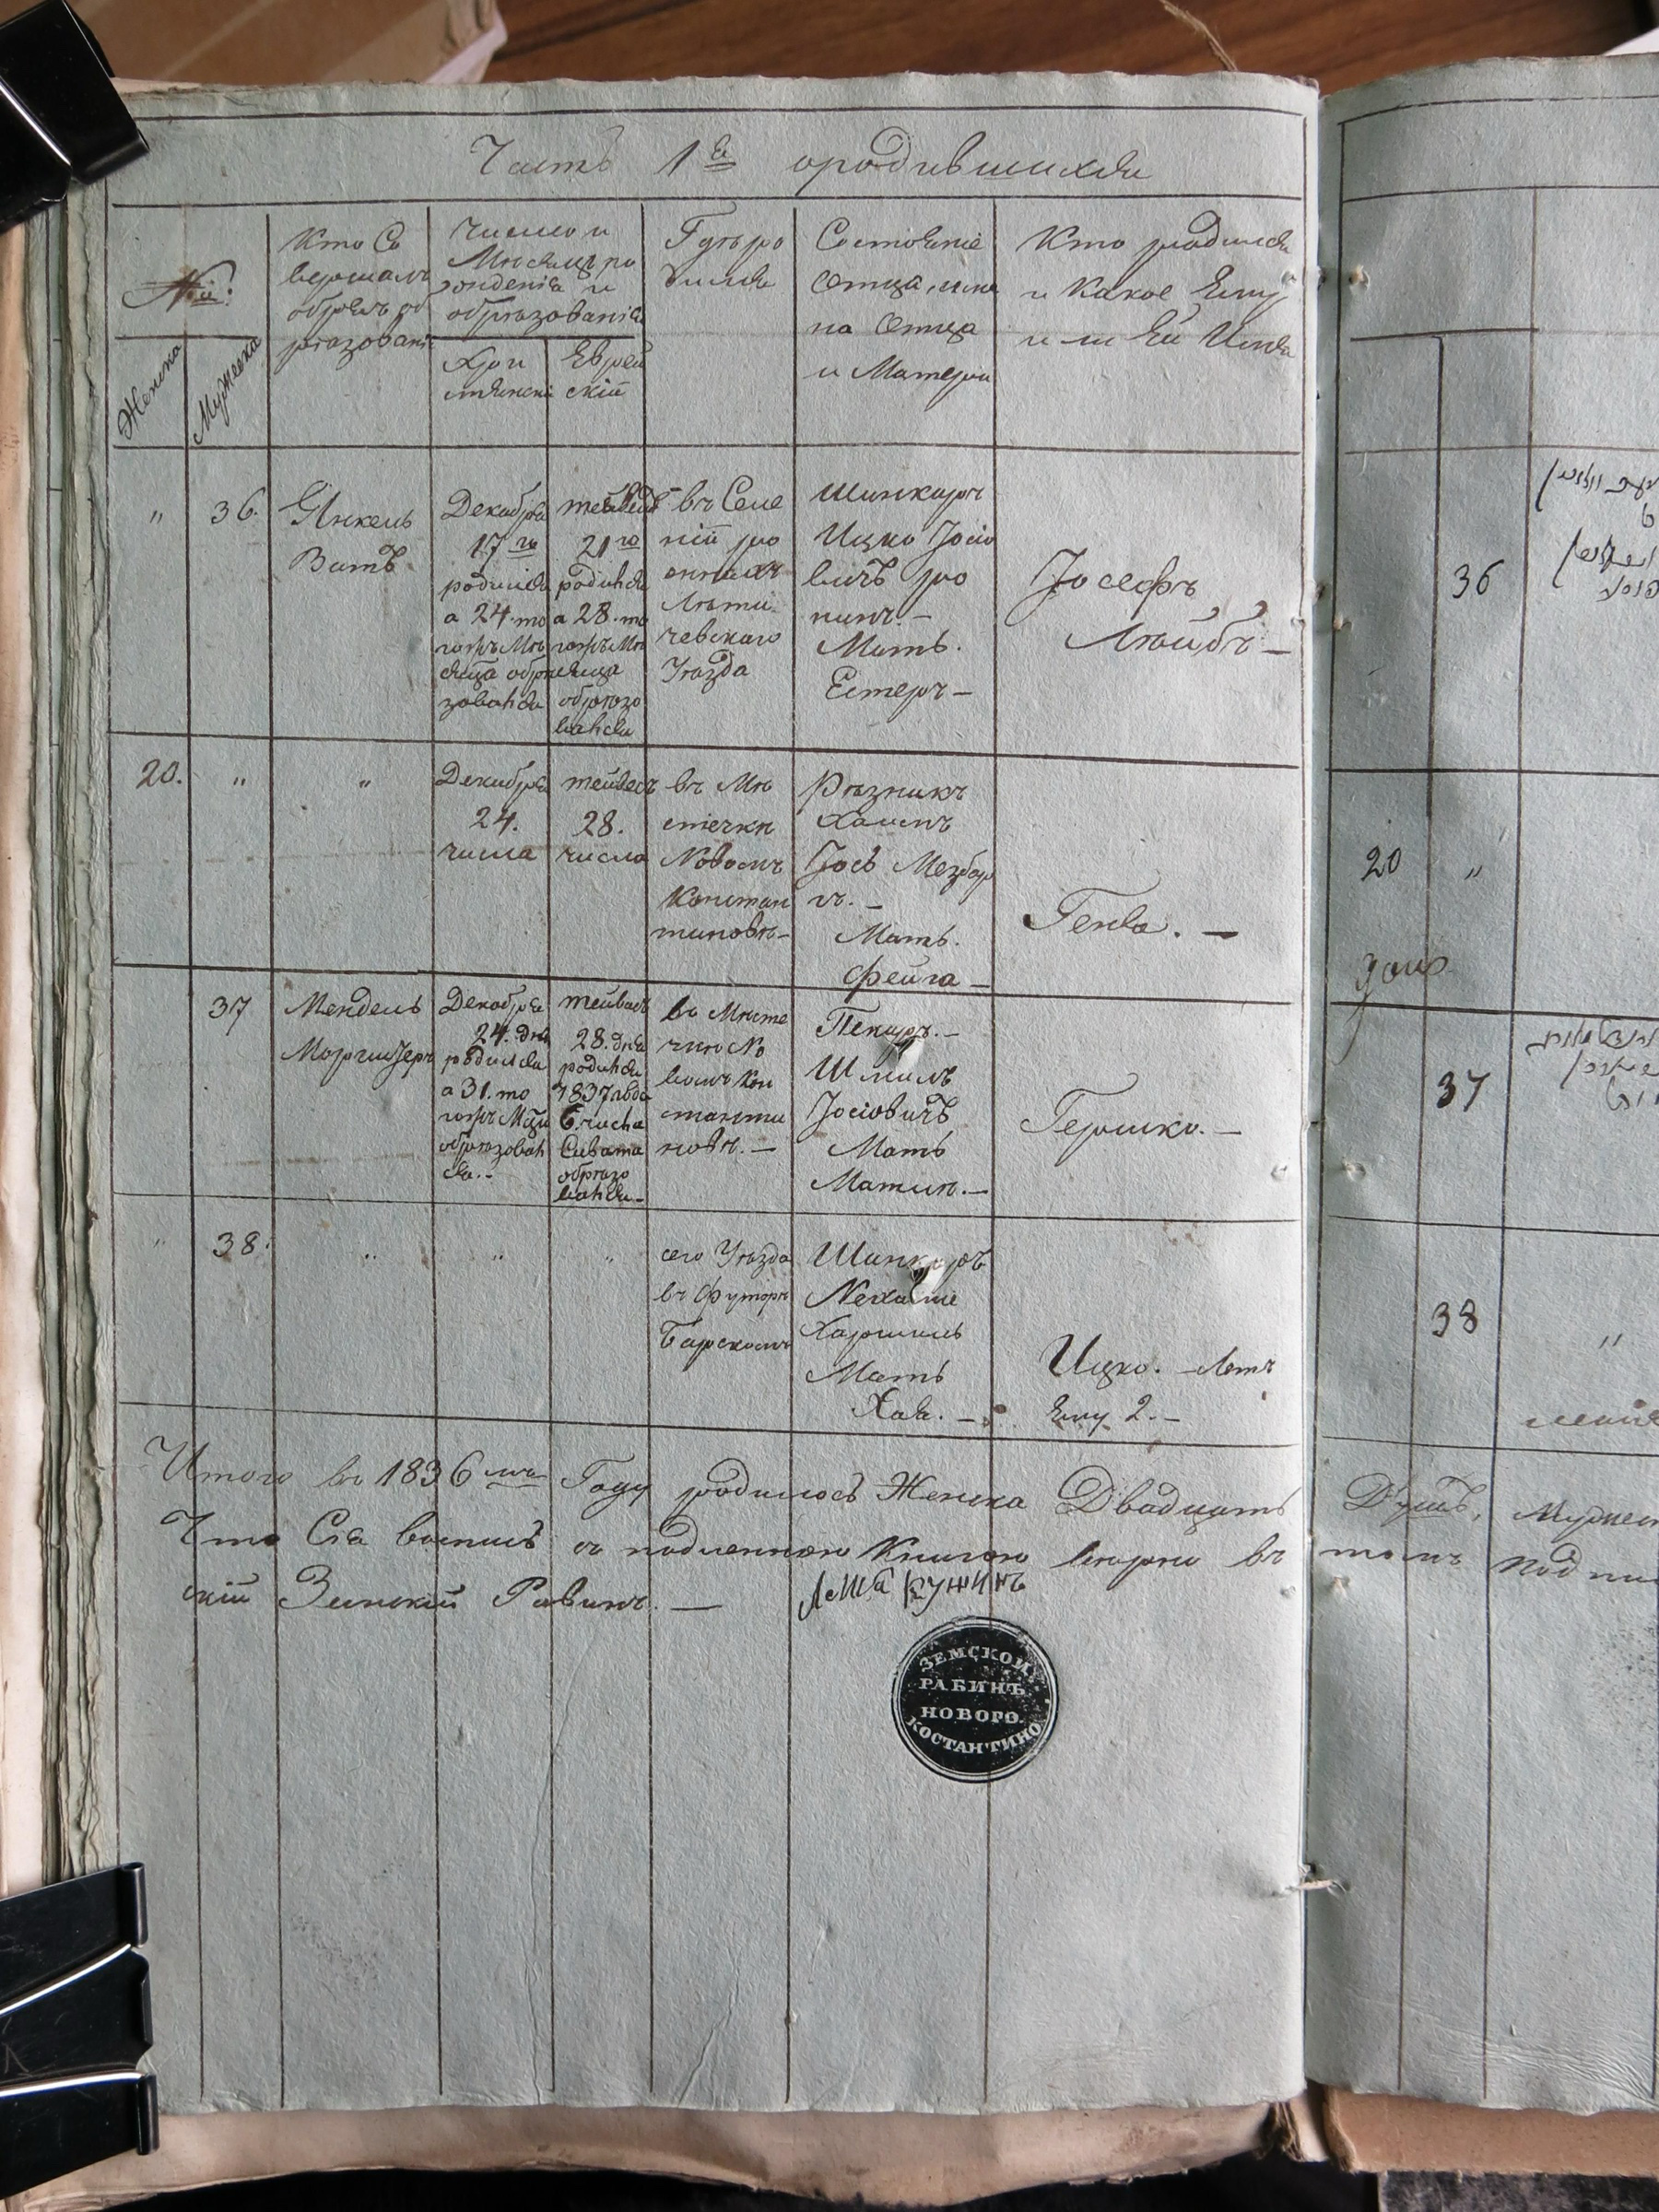 Часть 1я ородившихся
№й:
Женска
Мужеска
Кто Со
вершалъ
обрядъ об
рѣзованія
Число и
Мѣсяцъ ро
жденія и
обрѣзованія
Хри
стіянскій
Еврей
скій
Гдѣ ро
дился
Состояніе
отца, име
на Отца
и Матери
Кто родился
и Какое Ему
или Ей Имя
"
36.
Янкель
Витъ
Декабря
17го
родился
а 24. то
гожъ Мѣ
сяца обрѣ
зовался
21го
родился
а 28. то
гожъ Мѣ
сяца
обрѣзо
вался
въ Селе
Лѣти
чевскаго
Уѣзда
Шинкаръ
Ицко Іосіо
вичъ
Мать.
Естеръ —
Іосефъ
Лейбъ —
20.
"
"
Декабря
24.
числа
тейвесъ
28.
числа
въ Мѣ
стечкѣ
Новомъ
Констан
тиновѣ —
Рѣзникъ
Хаимъ
Іось
Мать.
Фейга —
Генва. —
37
Мендель
Декабря
24. дня
родился
а 31. то
гожъ Мцы
обрѣзовал
ся. -
тейвасъ
28. дня
родился
1837 года
6. числа
Сивата
обрѣзо
вался —
въ Мѣсте
чкѣ Но
вомъ Кон
станти
новѣ. —
Пекаръ. —
Шмиль
Іосіовичъ
Мать
Гершко. —
"
38.
"
"
"
сего Уѣзда
въ Футорѣ
Барскомъ
Шинкаръ
Нехаміе
Мать
Хая. —
Ицко. — Летъ
Ему 2. —
Итого въ 1836мъ Году родилось Женска Двадцать
Что Сія вопись съ подленною Книгою вѣрна въ
скій Земскій Равинъ. —
ЗЕМСКОИ
РАБИНЪ
НОВОГО.
КОСТАНТИНО
36
20
"
37
38
"
Душъ,
томъ